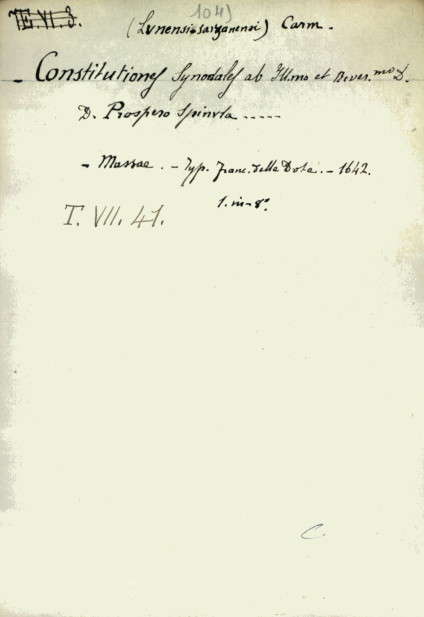 104)
T.E.VI.3. (Lunensiosarzanensi) Carm.
- Constitutiones Synodales ab Illmo et Rever.mo D.
D. Prospero Spinula .....
- Massae. - Typ. Franc. delle Dote. - 1642.
1. in-8º
T. VII. 41.
C